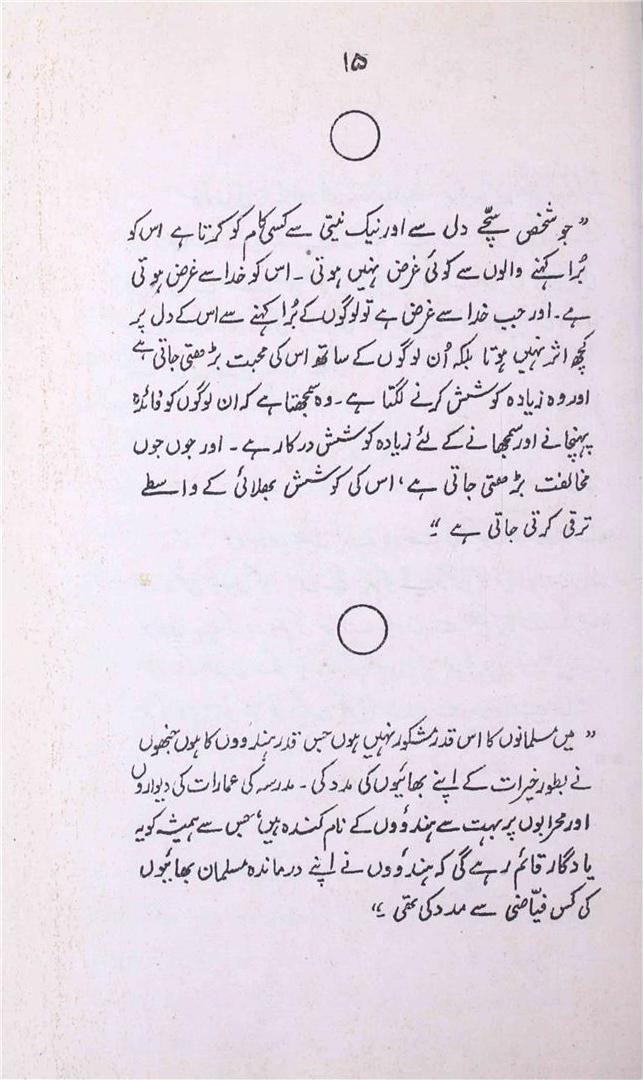 ۱۵
” جو شخص سچّے دل سے اور نیک نیتی سے کسی کام کو کرتا ہے اس کو
بُرا کہنے والوں سے کوئی غرض نہیں ہوتی ۔ اس کو خدا سے غرض ہوتی
ہے ۔ اور جب خدا سے غرض ہے تو لوگوں کے بُرا کہنے سے اس کے دل پر
کچھ اثر نہیں ہوتا بلکہ اُن لوگوں کے ساتھ اس کی محبت بڑھتی جاتی ہے
اور وہ زیادہ کوشش کرنے لگتا ہے ۔ وہ سمجھتا ہے کہ ان لوگوں کو فائدہ
پہنچانے اور سمجھانے کے لئے زیادہ کوشش درکار ہے ۔ اور جوں جوں
مخالفت بڑھتی جاتی ہے ، اس کی کوشش بھلائی کے واسطے
ترقی کرتی جاتی ہے “
” میں مسلمانوں کا اس قدر مشکور نہیں ہوں جس قدر ہندوؤں کا ہوں جنھوں
نے بطور خیرات کے اپنے بھائیوں کی مدد کی ۔ مدرسہ کی عمارات کی دیواروں
اور محرابوں پر بہت سے ہندوؤں کے نام کندہ ہیں ، جس سے ہمیشہ کو یہ
یادگار قائم رہے گی کہ ہندوؤں نے اپنے درماندہ مسلمان بھائیوں
کی کس فیّاضی سے مدد کی تھی ۔“